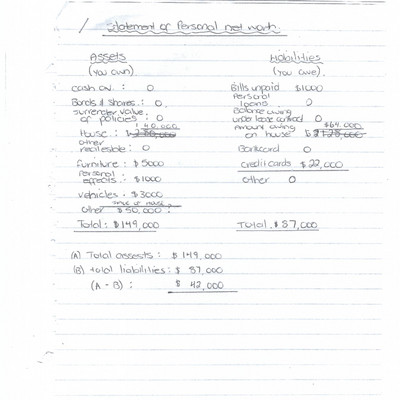 Statement of Personal net worth.
Assets
(you own).
cash on. : 0
Bonds & shares : 0
surrender value
of policies : 0
140,000
House :
other
realestate : 0
furniture : $5000
Personal
effects : $1000
vehicles : $3000
other $50,000 :
Total : $149,000
Liabilities
(you owe).
Bills unpaid $1000
Personal
loans 0
Balance owing
under lease contract 0
Amount owing $64,000
on house
Bankcard 0
Credit cards $22,000
other 0
Total $87,000
(A) Total assests : $149,000
(B) total liabilities : $87,000
(A - B) : $42,000